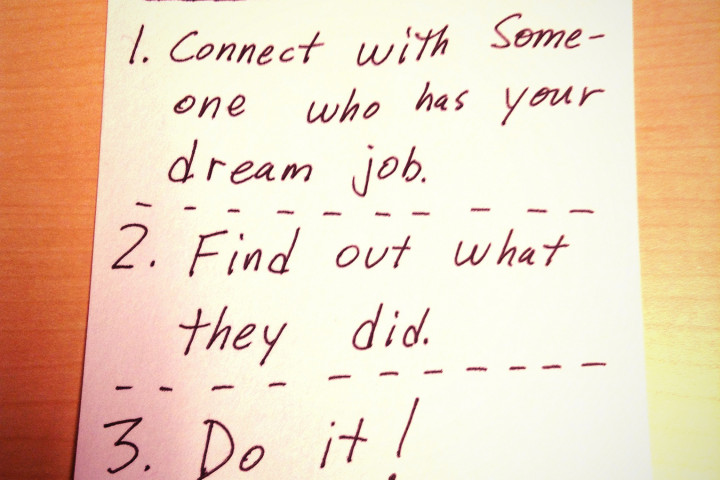 1. Connect with Some-
one who has your
dream job.
2. Find out what
they did.
3. Do it!